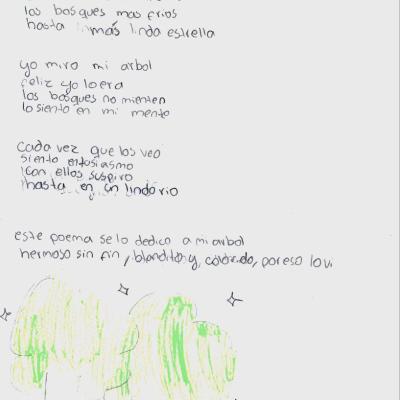 los bosques mas frios
hasta la más linda estrella
yo miro mi arbol
feliz yo loera
los bosques no mienten
lo siento en mi mento
cada vez que los veo
siento entosiasmo
con ellos suspiro
hasta en un lindo rio
este poema se lo dedico a mi arbol
hermoso sin fin, blandito y, colorido, por eso lo vi